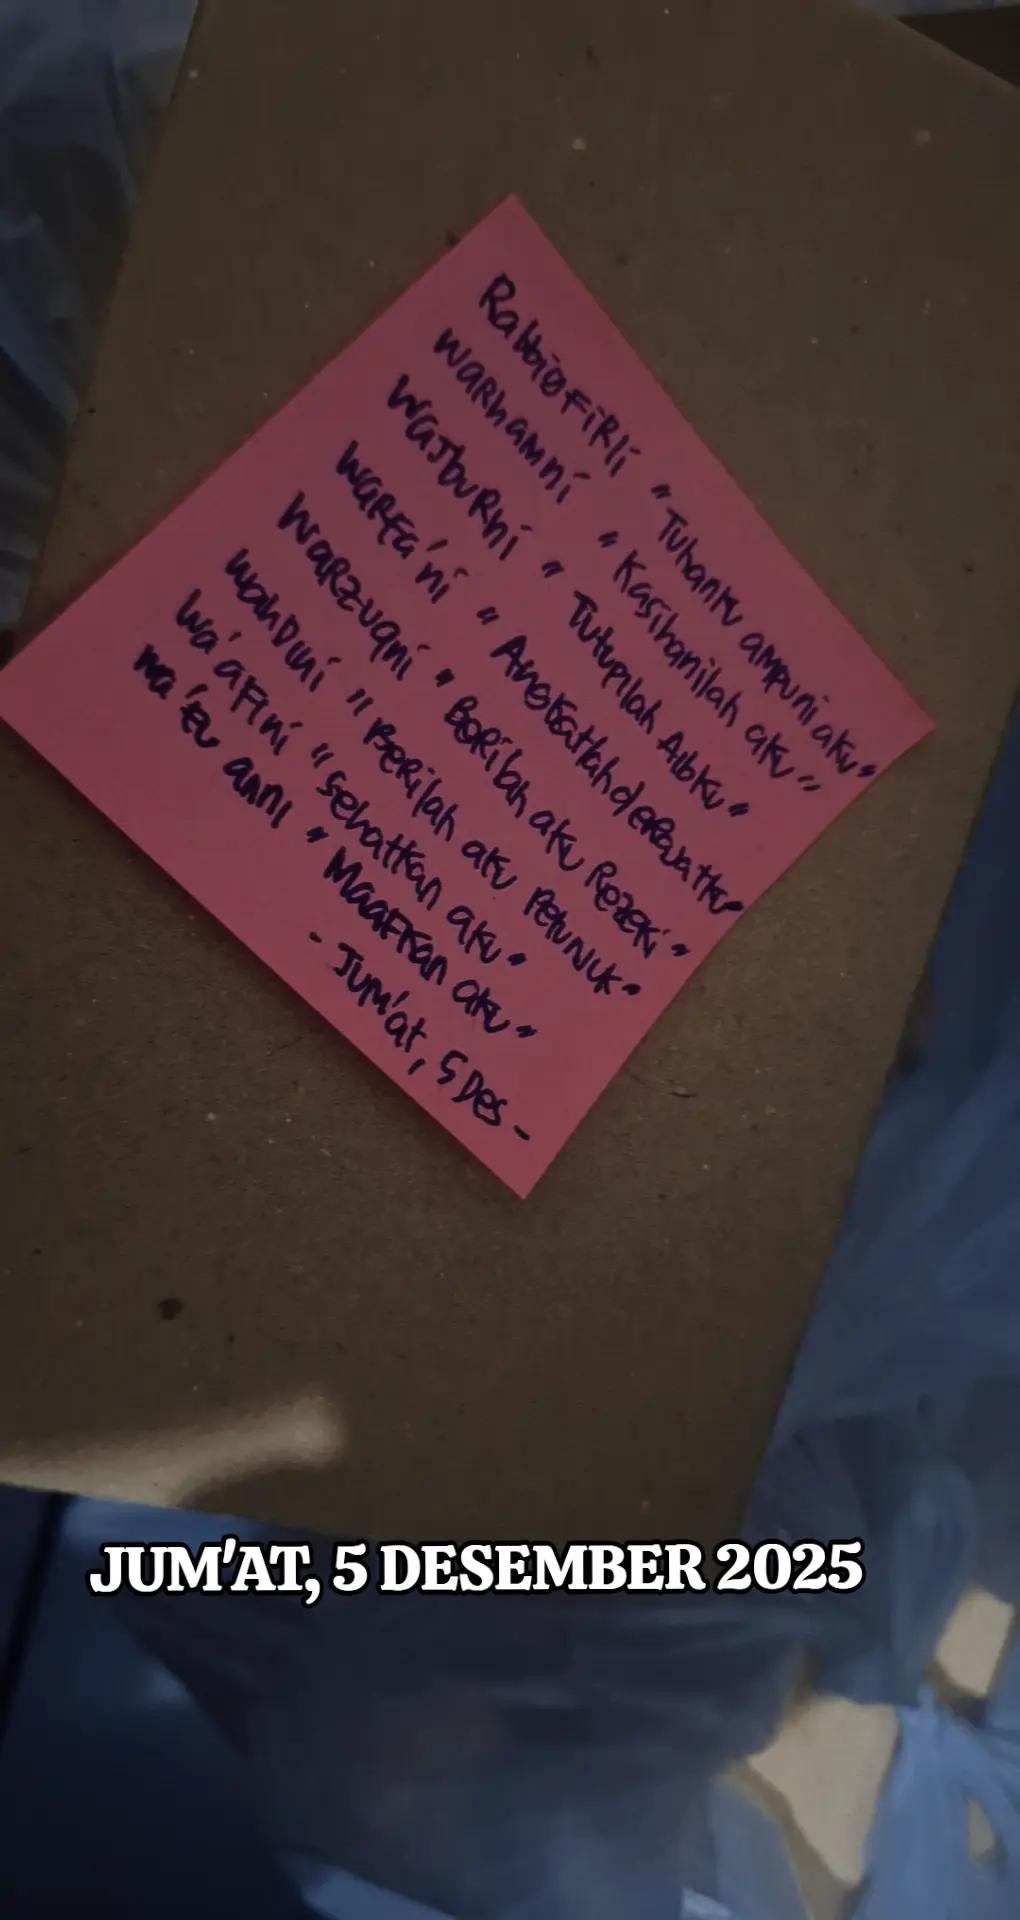 Rabbiøfirli "Tuhanku ampuni aku"
Warhamni "Kasihanilah aku"
Wajburni "Tutupilah Aibku"
Warfa'ni "Angkatlah derajatku"
Warzuqni "Berilah aku Rezeki"
Wahdini "Berilah aku Petunjuk"
Wa'afini "sehatkan aku"
Wa'fu anni "Maafkan aku"
- Jum'at, 5 Des -
JUM'AT, 5 DESEMBER 2025